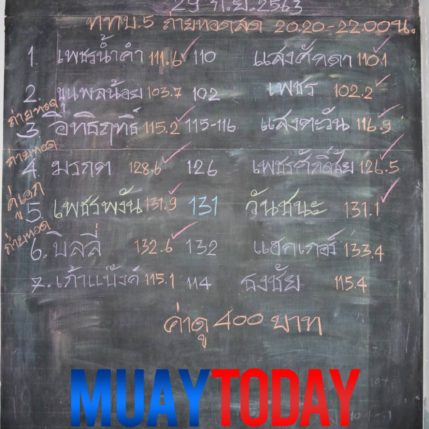 29 ก.ย.2563
ททบ.5 ถ่ายทอดสด 20.20-22.00น.
1. เพชรน้ำคำ 111.6 110 แสงศักดา 110.1
2. ขุนพลน้อย 103.7 102 เพชร 102.2
ถ่ายทอด
3 อิทธิฤทธิ์ 115.2 115-116 แสงตะวัน 116.9
ถ่ายทอด
4. มรกต 128.6 126 เพชรศักดิ์ชัย 126.5
คู่เอก
5. เพชรพงัน 131.9 131 วันชนะ 131.1
ถ่ายทอด
6. บิลลี่ 132.6 132 133.4
7. เก้าแบ๊งค์ 115.1 114 ธงชัย 115.4
ค่าดู 400 บาท
MUAYTODAY